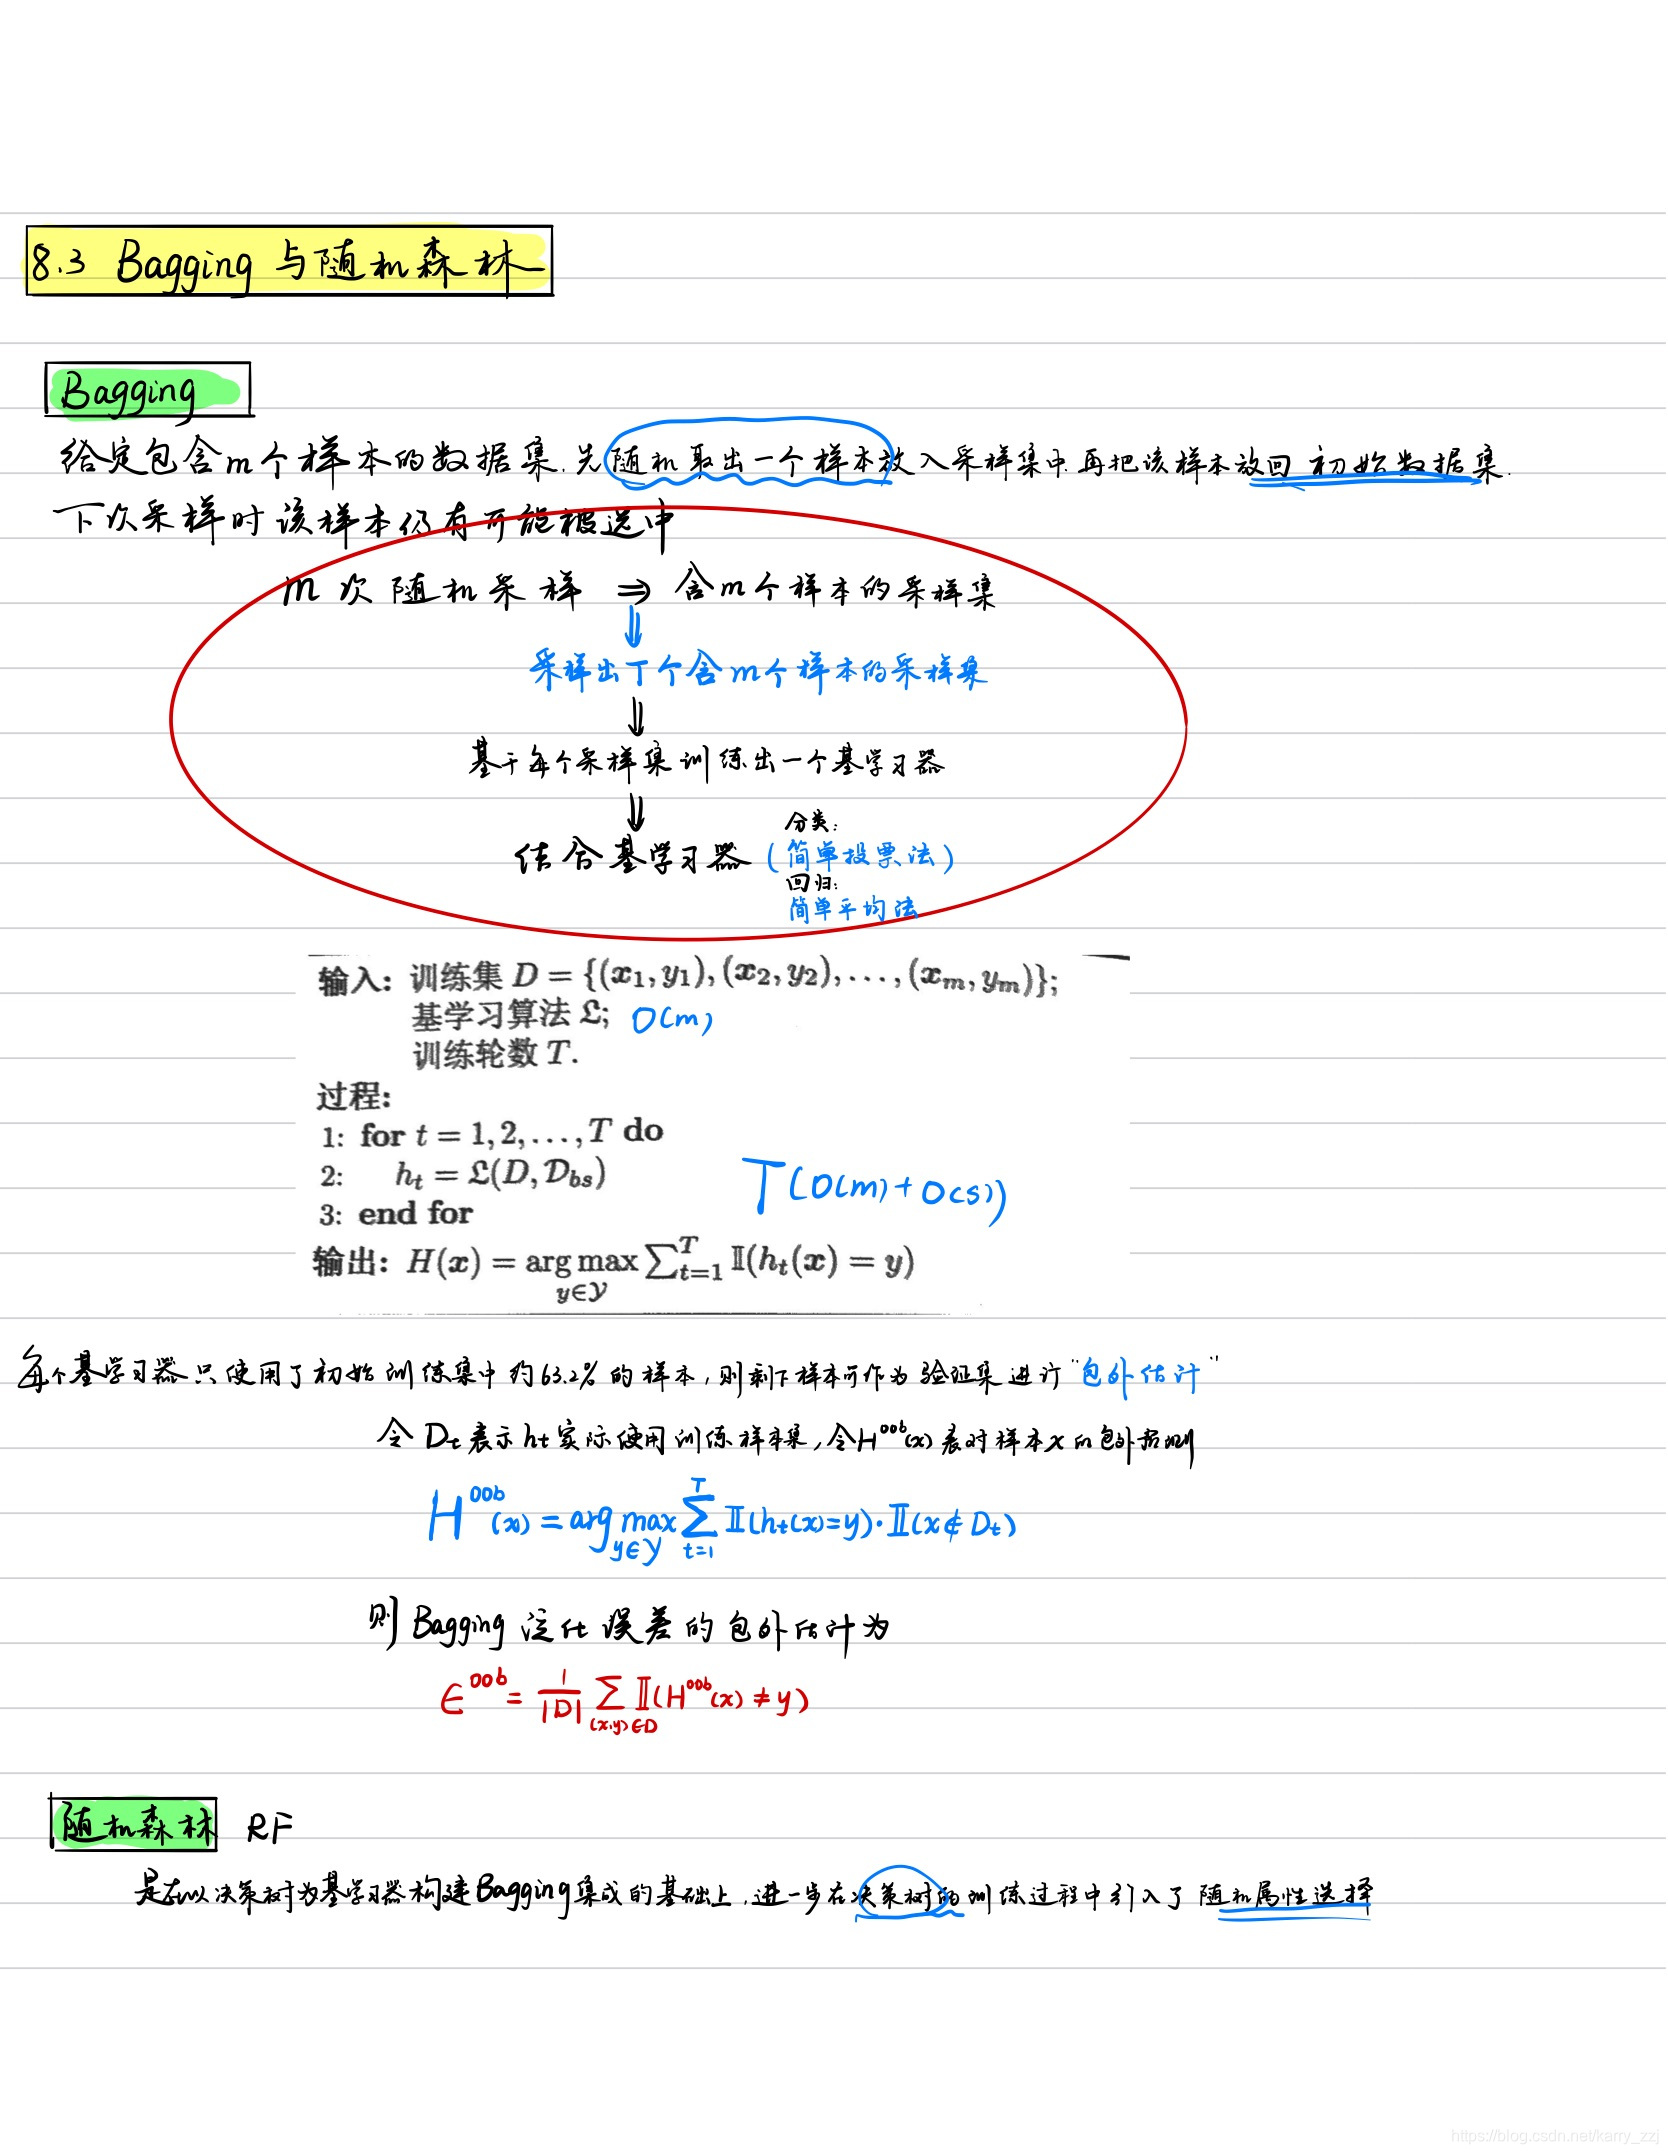 8.3 Bagging 与随机森林
Bagging
给定包含m个样本的数据集.先随机取出一个样本放入采样集中.再把该样本放回初始数据集.
下次采样时该样本仍有可能被选中
m次随机采样 ⇒ 含m个样本的采样集
⇓
采样出T个含m个样本的采样集
⇓
基于每个采样集训练出一个基学习器
⇓
分类:
结合基学习器 (简单投票法)
回归:
简单平均法
输入: 训练集 D = {(x₁, y₁), (x₂, y₂), . . . , (xₘ, yₘ)};
基学习算法 𝔏; O(m)
训练轮数 T.
过程:
1: for t = 1, 2, . . . , T do
2: hₜ = 𝔏(D, 𝒟_bs) T(O(m)+O(s))
3: end for
输出: H(x) = arg max_{y∈𝒴} ∑_{t=1}^{T} 𝕀(hₜ(x) = y)
每个基学习器只使用了初始训练集中约63.2%的样本,则剩下样本可作为验证集进行"包外估计"
令 Dₜ表示hₜ实际使用训练样本集,令H^oob(x)表对样本x的包外预测
H^oob(x) = arg max_{y∈𝒴} ∑_{t=1}^{T} 𝕀(hₜ(x)=y)·𝕀(x∉Dₜ)
则Bagging泛化误差的包外估计为
∈^oob = 1/|D| ∑_{(x,y)∈D} 𝕀(H^oob(x)≠y)
随机森林 RF
是在以决策树为基学习器构建Bagging集成的基础上,进一步在决策树的训练过程中引入了随机属性选择
https://blog.csdn.net/karry_zzj